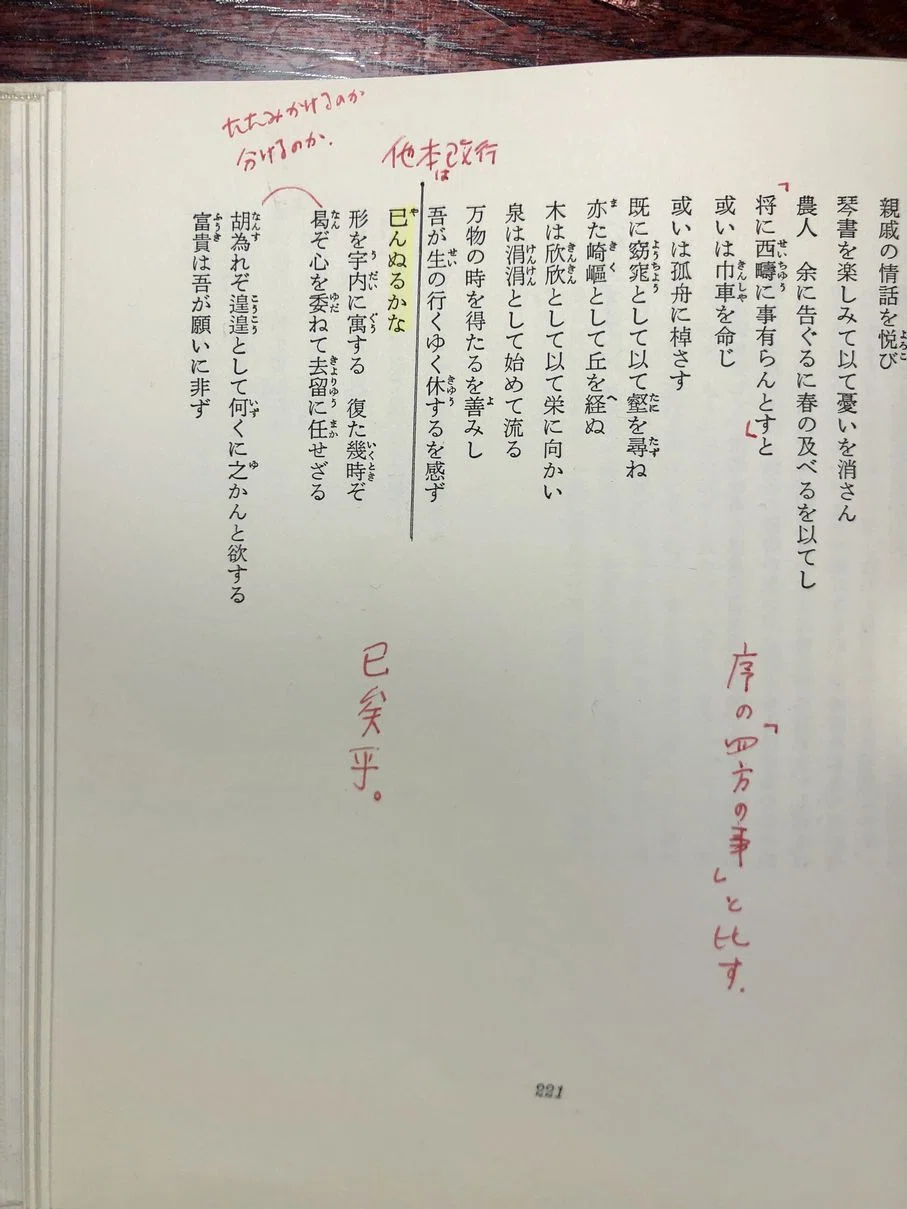 親戚の情話を悦び
琴書を楽しみて以て憂いを消さん
農人　余に告ぐるに春の及べるを以てし
将に西疇に事有らんとすと
或いは巾車を命じ
或いは孤舟に棹さす
既に窈窕として以て壑を尋ね
亦た崎嶇として丘を経ぬ
木は欣欣として以て栄に向かい
泉は涓涓として始めて流る
万物の時を得たるを善みし
吾が生の行くゆく休するを感ず
已んぬるかな
形を宇内に寓する　復た幾時ぞ
曷ぞ心を委ねて去留に任せざる
胡為れぞ遑遑として何くに之かんと欲する
富貴は吾が願いに非ず
たたみかけるのか
分けるのか.
他本は改行
序の「四方の事」と比す.
已矣乎。
221